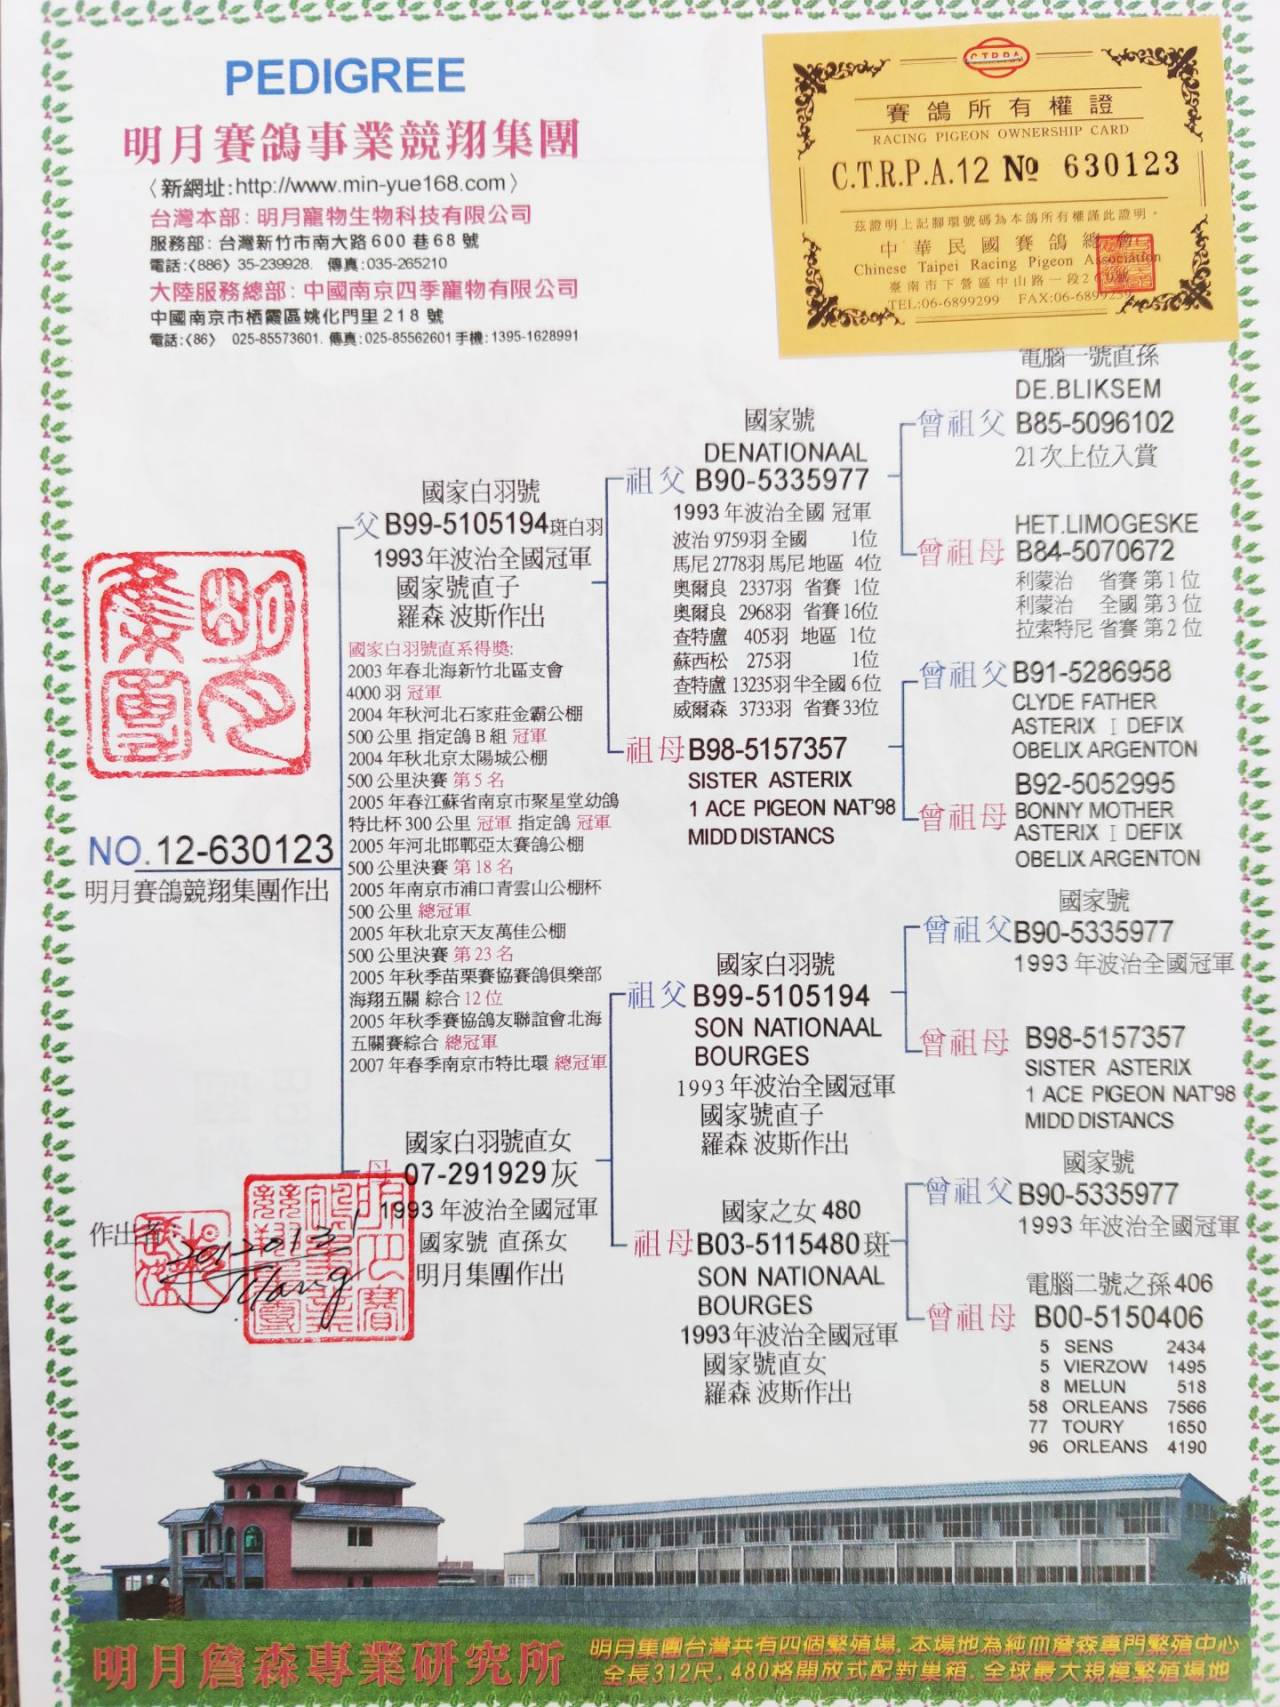 PEDIGREE
明月賽鴿事業競翔集團
〈新網址:http://www.min-yue168.com〉
台灣本部: 明月寵物生物科技有限公司
服務部: 台灣新竹市南大路600巷68號
電話:〈886〉35-239928. 傳真:035-265210
大陸服務總部: 中國南京四季寵物有限公司
中國南京市栖霞區姚化門里218號
電話:〈86〉 025-85573601. 傳真:025-85562601 手機: 1395-1628991
C.T.R.P.A
賽鴿所有權證
RACING PIGEON OWNERSHIP CARD
C.T.R.P.A.12 № 630123
茲證明上記腳環號碼為本鴿所有權謹此證明。
中華民國賽鴿總會
Chinese Taipei Racing Pigeon Association
臺南市下營區中山路一段
TEL:06-6899299 FAX:06-6899259
NO.12-630123
明月賽鴿競翔集團作出
國家白羽號
父 B99-5105194 斑白羽
1993年波治全國冠軍
國家號直子
羅森 波斯作出
國家白羽號直系得獎:
2003年春北海新竹北區支會
4000羽 冠軍
2004年秋河北石家莊金霸公棚
500公里 指定鴿B組 冠軍
2004年秋北京太陽城公棚
500公里決賽 第5名
2005年春江蘇省南京市聚星堂幼鴿
特比杯300公里 冠軍 指定鴿 冠軍
2005年河北邯鄲亞太賽鴿公棚
500公里決賽 第18名
2005年南京市浦口青雲山公棚杯
500公里 總冠軍
2005年秋北京天友萬佳公棚
500公里決賽 第23名
2005年秋季苗栗賽協賽鴿俱樂部
海翔五關 綜合12位
2005年秋季賽協鴿友聯誼會北海
五關賽綜合 總冠軍
2007年春季南京市特比環 總冠軍
國家白羽號直女
母 07-291929灰
1993年波治全國冠軍
國家號 直孫女
明月集團作出
作出者:
國家號
DENATIONAAL
祖父 B90-5335977
1993年波治全國 冠軍
波治 9759羽 全國 1位
馬尼 2778羽 馬尼 地區 4位
奧爾良 2337羽 省賽 1位
奧爾良 2968羽 省賽 16位
查特盧 405羽 地區 1位
蘇西松 275羽 1位
查特盧 13235羽 半全國 6位
威爾森 3733羽 省賽 33位
祖母 B98-5157357
SISTER ASTERIX
1 ACE PIGEON NAT'98
MIDD DISTANCS
國家白羽號
祖父 B99-5105194
SON NATIONAAL
BOURGES
1993年波治全國冠軍
國家號直子
羅森 波斯作出
國家之女480
祖母 B03-5115480 斑
SON NATIONAAL
BOURGES
1993年波治全國冠軍
國家號直女
羅森 波斯作出
電腦一號直孫
DE.BLIKSEM
曾祖父 B85-5096102
21次上位入賞
HET.LIMOGESKE
曾祖母 B84-5070672
利蒙治 省賽 第1位
利蒙治 全國 第3位
拉索特尼 省賽 第2位
曾祖父 B91-5286958
CLYDE FATHER
ASTERIX I DEFIX
OBELIX ARGENTON
B92-5052995
曾祖母 BONNY MOTHER
ASTERIX I DEFIX
OBELIX ARGENTON
國家號
曾祖父 B90-5335977
1993年波治全國冠軍
曾祖母 B98-5157357
SISTER ASTERIX
1 ACE PIGEON NAT'98
MIDD DISTANCS
國家號
曾祖父 B90-5335977
1993年波治全國冠軍
電腦二號之孫406
曾祖母 B00-5150406
5 SENS 2434
5 VIERZOW 1495
8 MELUN 518
58 ORLEANS 7566
77 TOURY 1650
96 ORLEANS 4190
明月詹森專業研究所
明月集團台灣共有四個繁殖場,本場地為純血詹森專門繁殖中心
全長312尺,480格開放式配對巢箱,全球最大規模繁殖場地